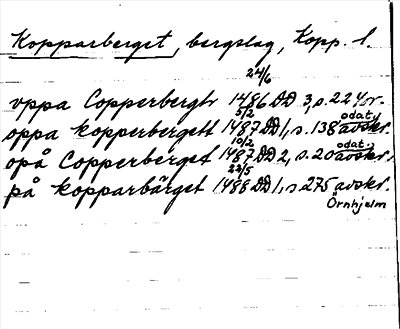 Kopparberget, bergslag, Kopp. l.
24/6
vppa Copperberghr 1486 DD 3, s. 22 Yor.
5/2 odat.
oppa kopperbergett 1487 DD 1, s. 138 avskr.
10/2 odat.
opå Copperberget 1487 DD 2, s. 20 avskr.
22/5
på kopparbärget 1488 DD 1, s 275 avskr.
Örnhjelm